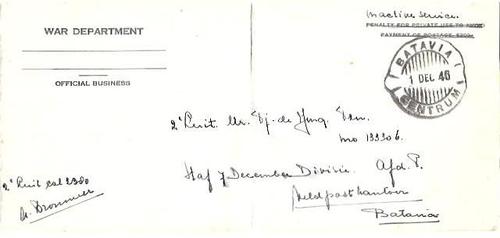 WAR DEPARTMENT
OFFICIAL BUSINESS
In active service.
PENALTY FOR PRIVATE USE TO AVOID
PAYMENT OF POSTAGE $300
BATAVIA
1 DEC. 46
CENTRUM
2e Luit. Mr. Tj. de Jong
no 133306.
Staf 7 December Divisie. Afd. P.
Veldpostkantoor
Batavia
2e Luit